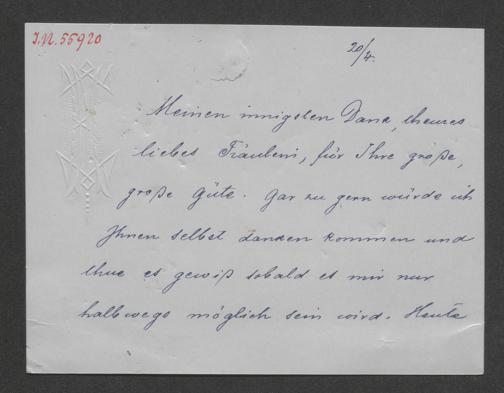 J.N. 55920
20/4.
Meinen innigsten Dank, theures
liebes Fräulein, für Ihre große,
große Güte. Gar zu gern würde ich
Ihnen selbst danken kommen und
thue es gewiß sobald es mir nur
halbwegs möglich sein wird. Heute